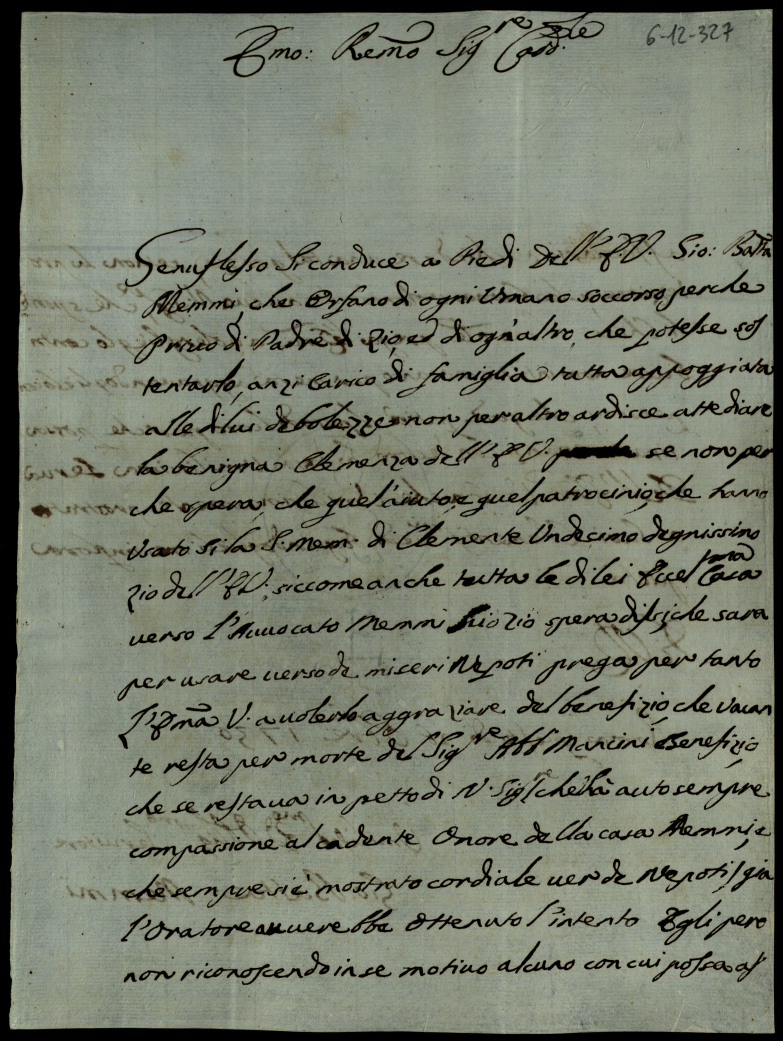 6-12-327
Emo: Remo Sigre Cardle
Genuflesso si conduce a Piedi dell' E V. Gio: Batta
Memmi, che Orfano di ogni Umano soccorso, perche
Privo di Padre di Zio, ed di ogn'altro, che potesse sos
tentarlo, anzi Carico di famiglia tutta appoggiata
alle di lui debolezze non per altro ardisce attediare
la benigna Clemenza dell' E V. se non per
che spera, che quel'aiuto, e quel patrocinio, che hanno
usato si la S. Mem. di Clemente Undecimo degnissimo
zio dell' E V., siccome anche tutta le di lei Eccelma Casa
verso l'Avvocato Memmi suo zio spera dissi, che sara
per usare verso de miseri Nepoti prega per tanto
l'Ema V. a volerlo aggraziare del benefizio, che vacan
te resta per morte del Sigre Abb Mancini Benefizio,
che se restava in petto di N. Sigre che hà auto sempre
compassione al cadente Onore della casa Memmi, e
che sempre si è mostrato cordiale ver de Nepoti, già
l'Oratore avverebbe Ottenuto l'intento Egli pero
non riconoscendo in se motivo alcuno con cui possa as